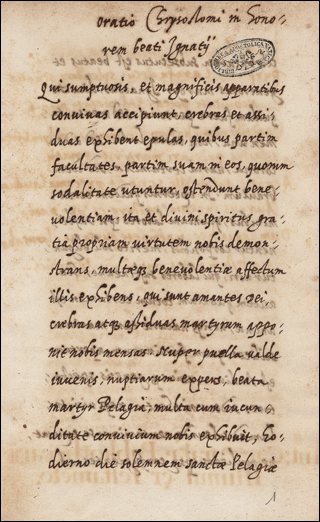 Oratio Chrysostomi in hono-
rem beati Ignatij
Qui sumptuosis, et magnificis apparatibus
convivas accipiunt, crebras et assi-
duas exhibent epulas, quibus partim
facultates, partim suam in eos, quorum
sodalitate utuntur, ostendunt bene-
volentiam, ita et divini spiritus gra-
tia propriam virtutem nobis demon-
strans, multāq; benevolentiæ affectum
illis exhibens, qui sunt amantes Dei,
cræbras atq; assiduas martyrum appo-
nit nobis mensas. Nuper puella valde
iuvenis, nuptiarum expers, beata
martyr Pelagia, multa cum iucun-
ditate convivium nobis exhibuit, ho-
dierno die solemnem sanctæ Pelagiæ
1